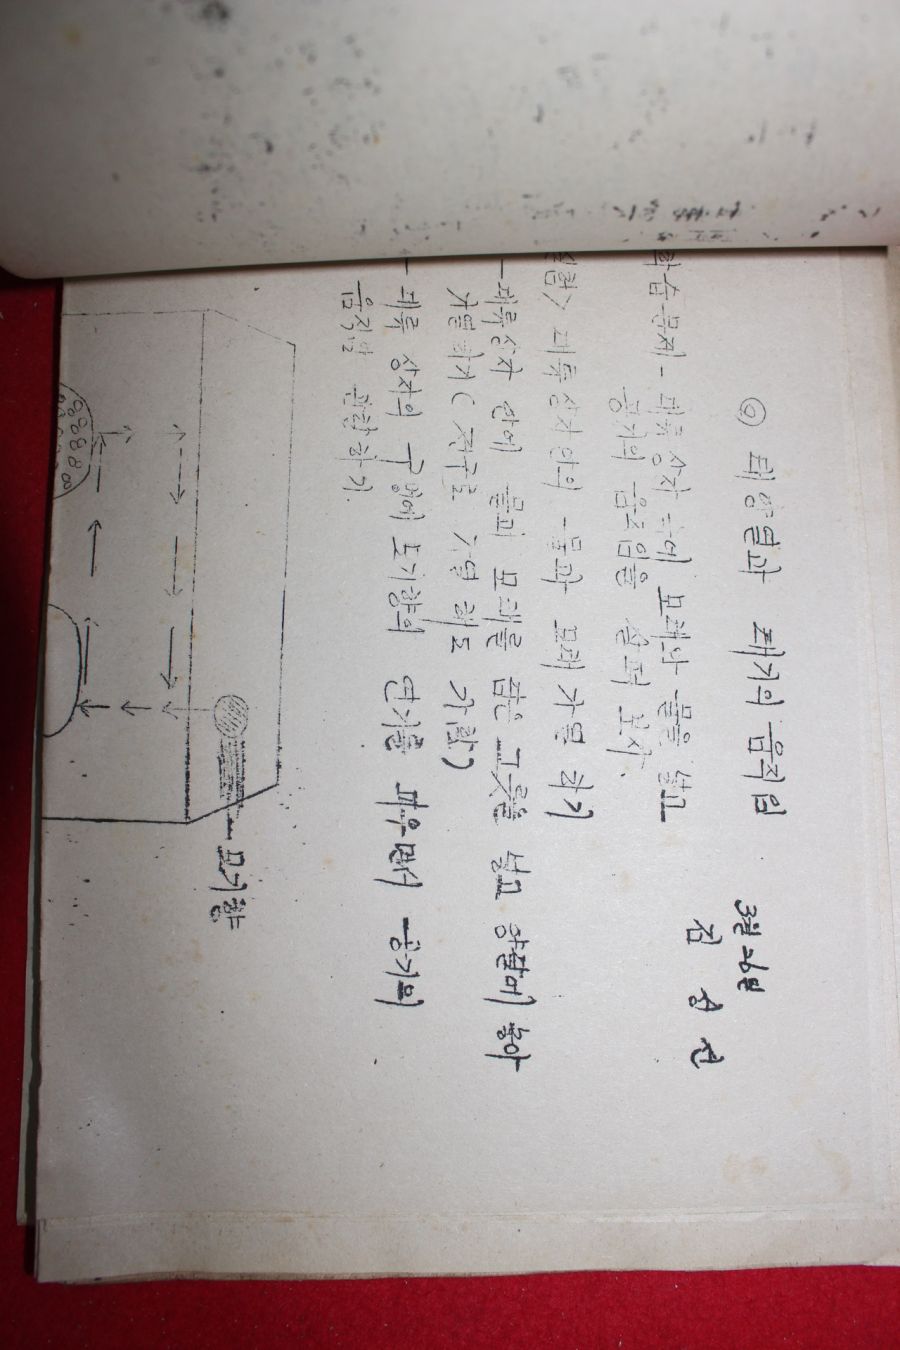 ◎ 태양열과 대기의 움직임
3월 26일
김
학습문제 - 대류 상자 속에 모래와 물을 넣고
공기의 움직임을 살펴 보자.
실험> 대류 상자 안의 물과 모래 가열 하기
- 대류상자 안에 물과 모래를 담은 그릇을 넣고 양편에 놓아
가열하기 (전구로 가열 해도 가함)
- 대류 상자의 구멍에 모기향의 연기를 피우면서 공기의
움직임 관찰 하기.
모기향